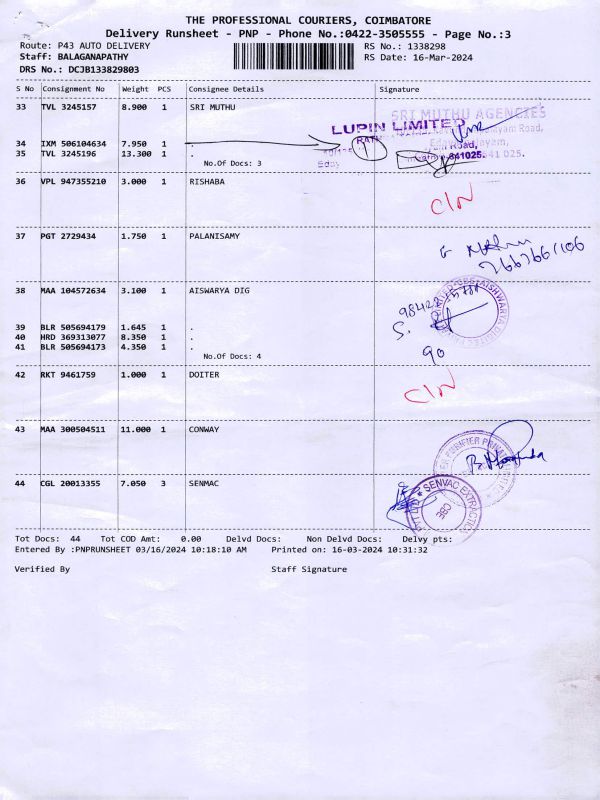 THE PROFESSIONAL COURIERS, COIMBATORE
Delivery Runsheet - PNP - Phone No.:0422-3505555 - Page No.:3
Route: P43 AUTO DELIVERY
RS No.: 1338298
Staff: BALAGANAPATHY
RS Date: 16-Mar-2024
DRS No.: DCJB133829803
S No Consignment No Weight PCS Consignee Details Signature
33 TVL 3245157 8.900 1 SRI MUTHU
SRI MUTHU AGENCIES
LUPIN LIMITED
34 IXM 506104634 7.950 1 .
Road,
35 TVL 3245196 13.300 1 .
641025.
No.Of Docs: 3
36 VPL 947355210 3.000 1 RISHABA
C/N
37 PGT 2729434 1.750 1 PALANISAMY
38 MAA 104572634 3.100 1 AISWARYA DIG
39 BLR 505694179 1.645 1 .
40 HRD 369313077 8.350 1 .
41 BLR 505694173 4.350 1 .
90
No.Of Docs: 4
42 RKT 9461759 1.000 1 DOITER
C/N
43 MAA 300504511 11.000 1 CONWAY
44 CGL 20013355 7.050 3 SENMAC
SENVAC EXTRACTION
CBE
Tot Docs: 44 Tot COD Amt: 0.00 Delvd Docs: Non Delvd Docs: Delvy pts:
Entered By :PNPRUNSHEET 03/16/2024 10:18:10 AM Printed on: 16-03-2024 10:31:32
Verified By Staff Signature